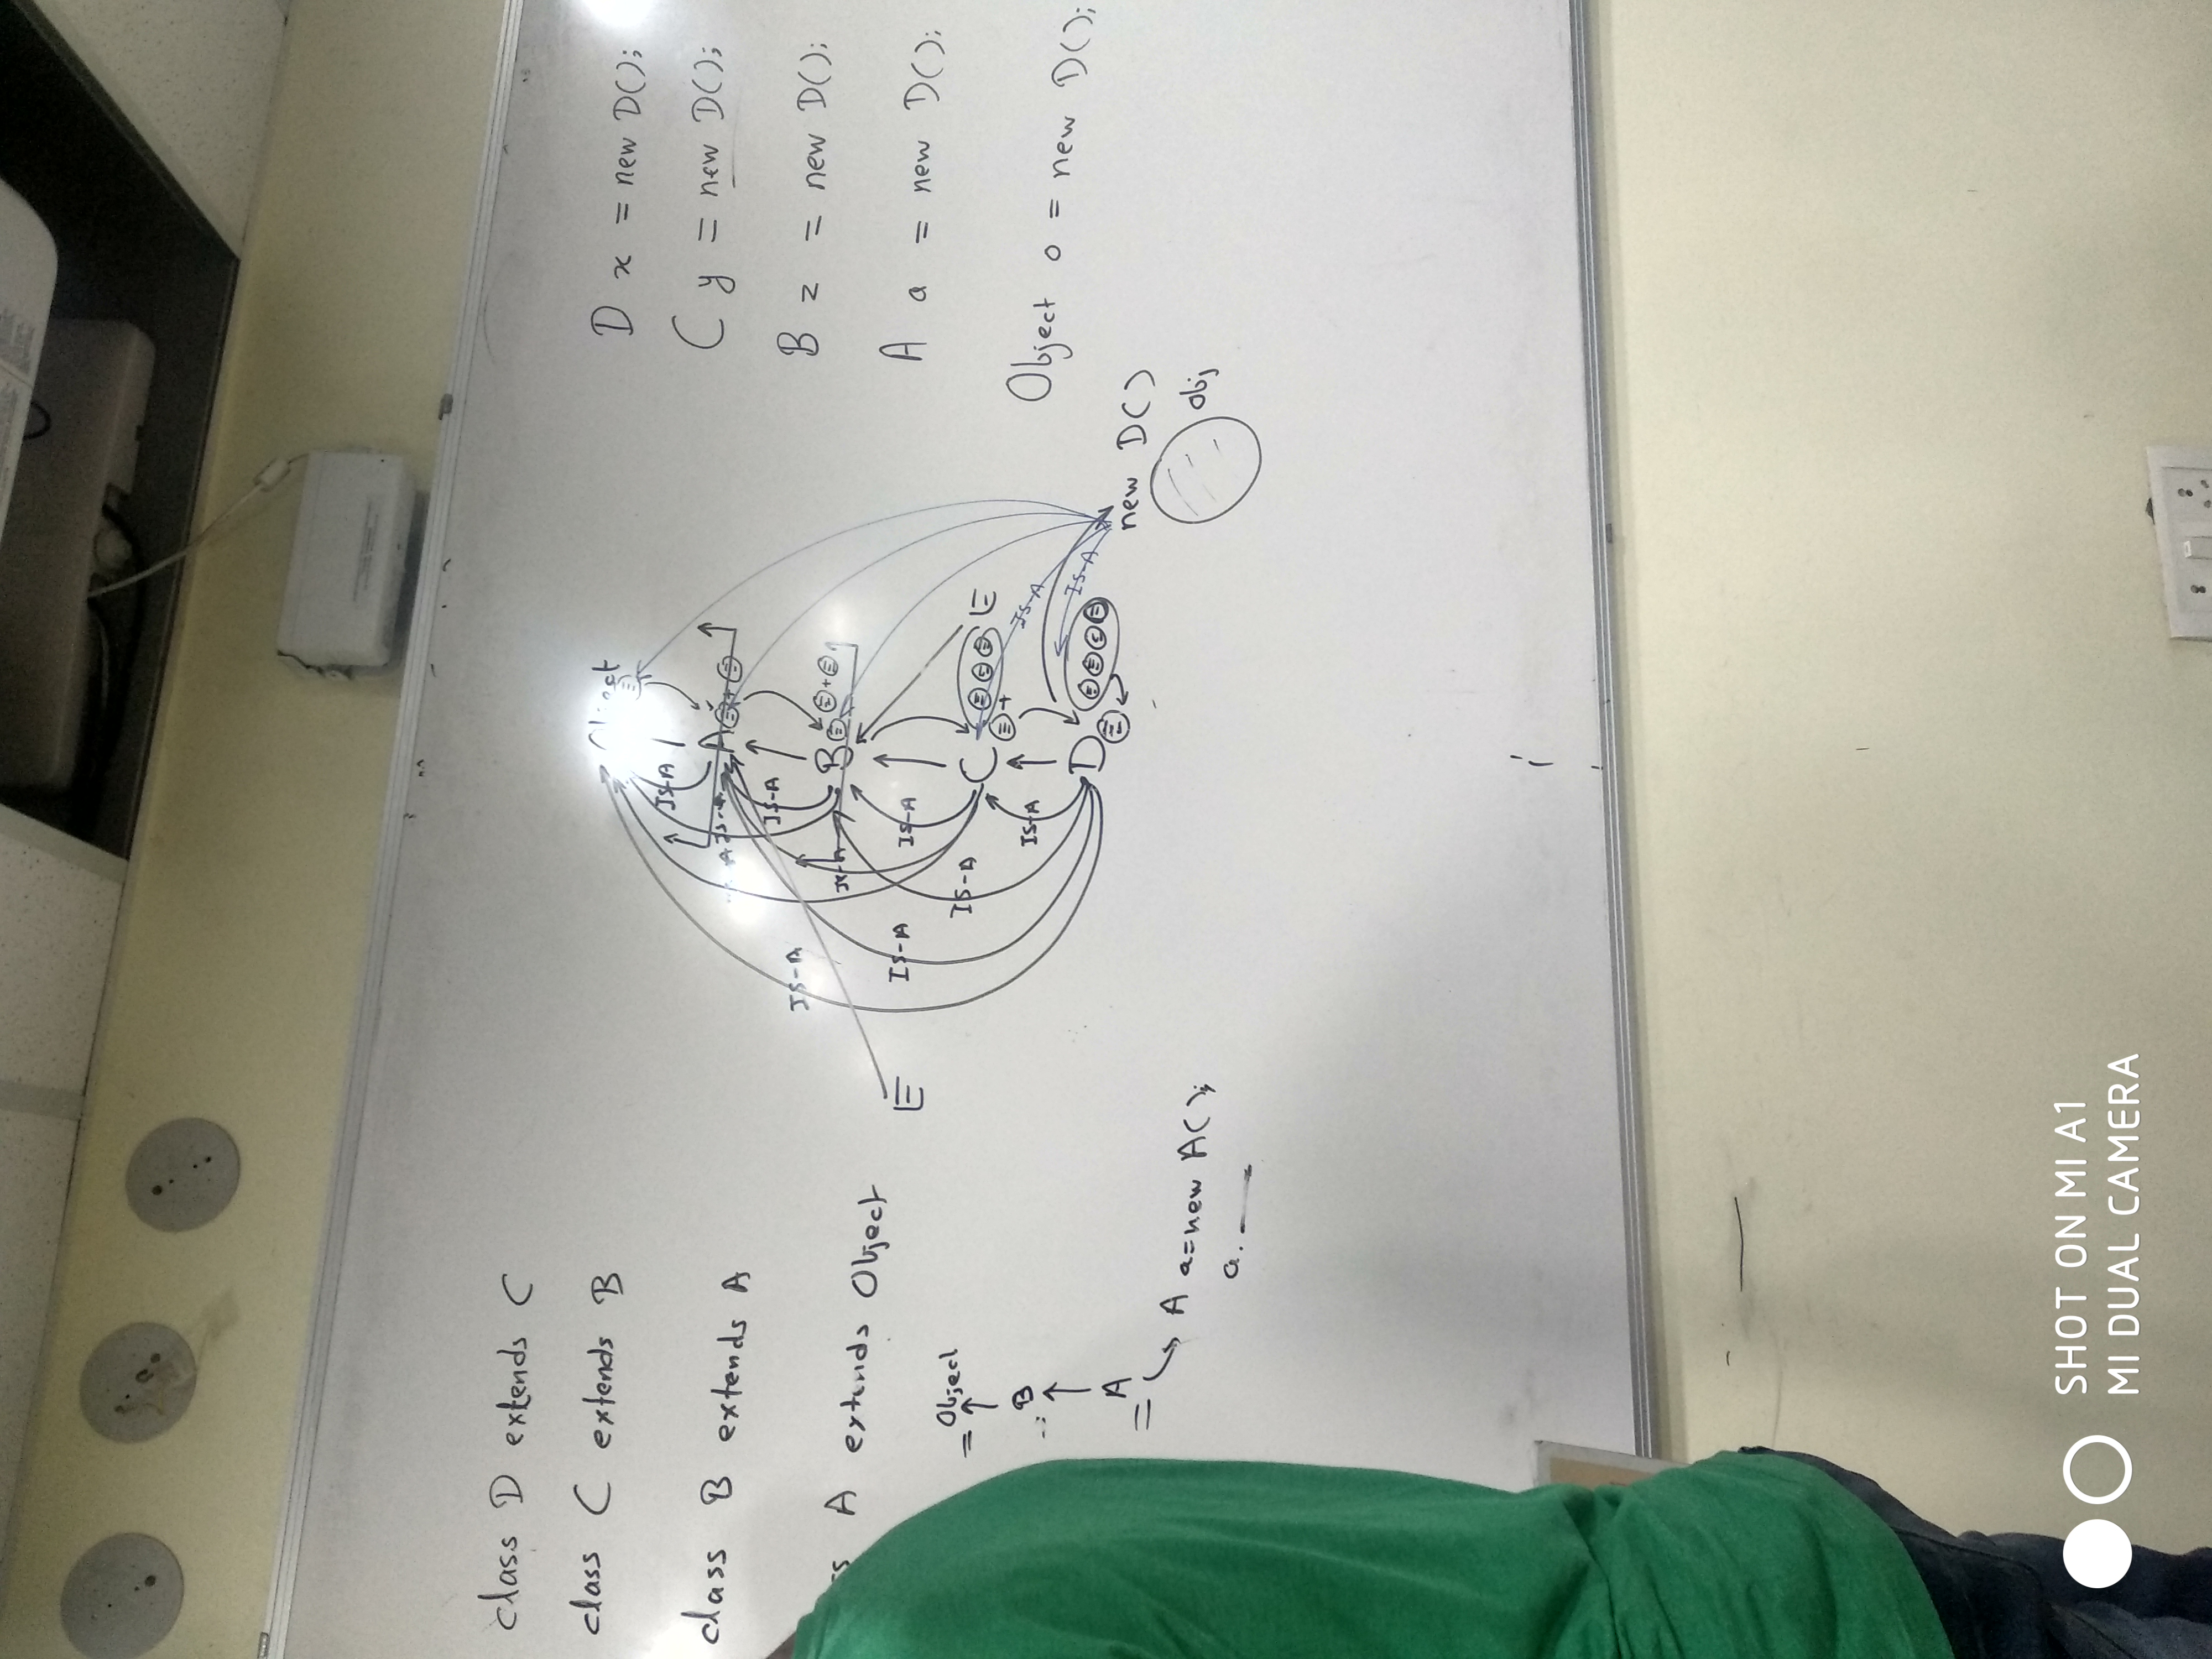 class D extends C
class C extends B
class B extends A
A extends Object
Object
B
A
A a=new A();
a.
E
Object
IS-A
A
+
IS-A
IS-A
B
+
IS-A
IS-A
IS-A
C
+
E
IS-A
IS-A
D
IS-A
new D()
obj
D x = new D();
C y = new D();
B z = new D();
A a = new D();
Object o = new D();
SHOT ON MI A1
MI DUAL CAMERA